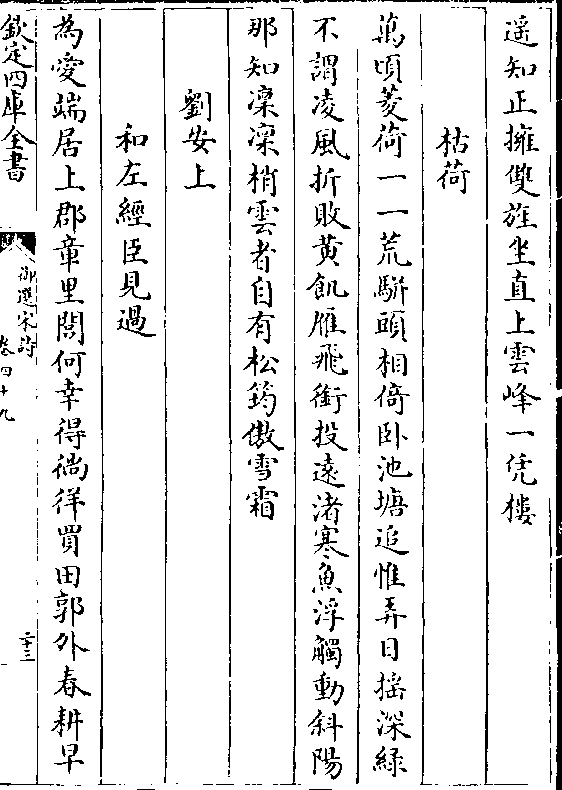 遥知正擁雙旌坐直上雲峰一凭樓
枯荷
萬頃菱荷一一荒駢頭相倚卧池塘追惟弄日揺深緑
不謂凌風折敗黄飢雁飛銜投遠渚寒魚浮觸動斜陽
那知凜凜梢雲者自有松筠傲雪霜
劉安上
和左經臣見過
為愛端居上郡章里閭何幸得徜徉買田郭外春耕早
欽定四庫全書
御選宋詩
卷四十九
二十三